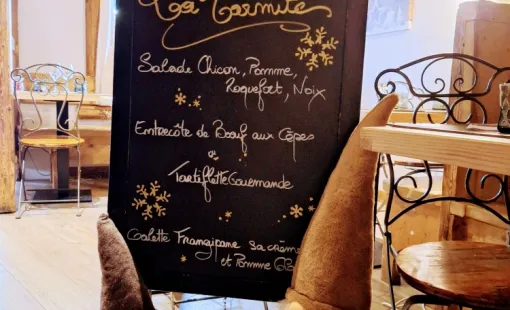 La Marmite
Salade Chicon, Pomme,
Roquefort, Noix
Entrecôte de Bœuf aux Cèpes
ou
Tartiflette Gourmande
Galette Frangipane sa crème
et Pomme